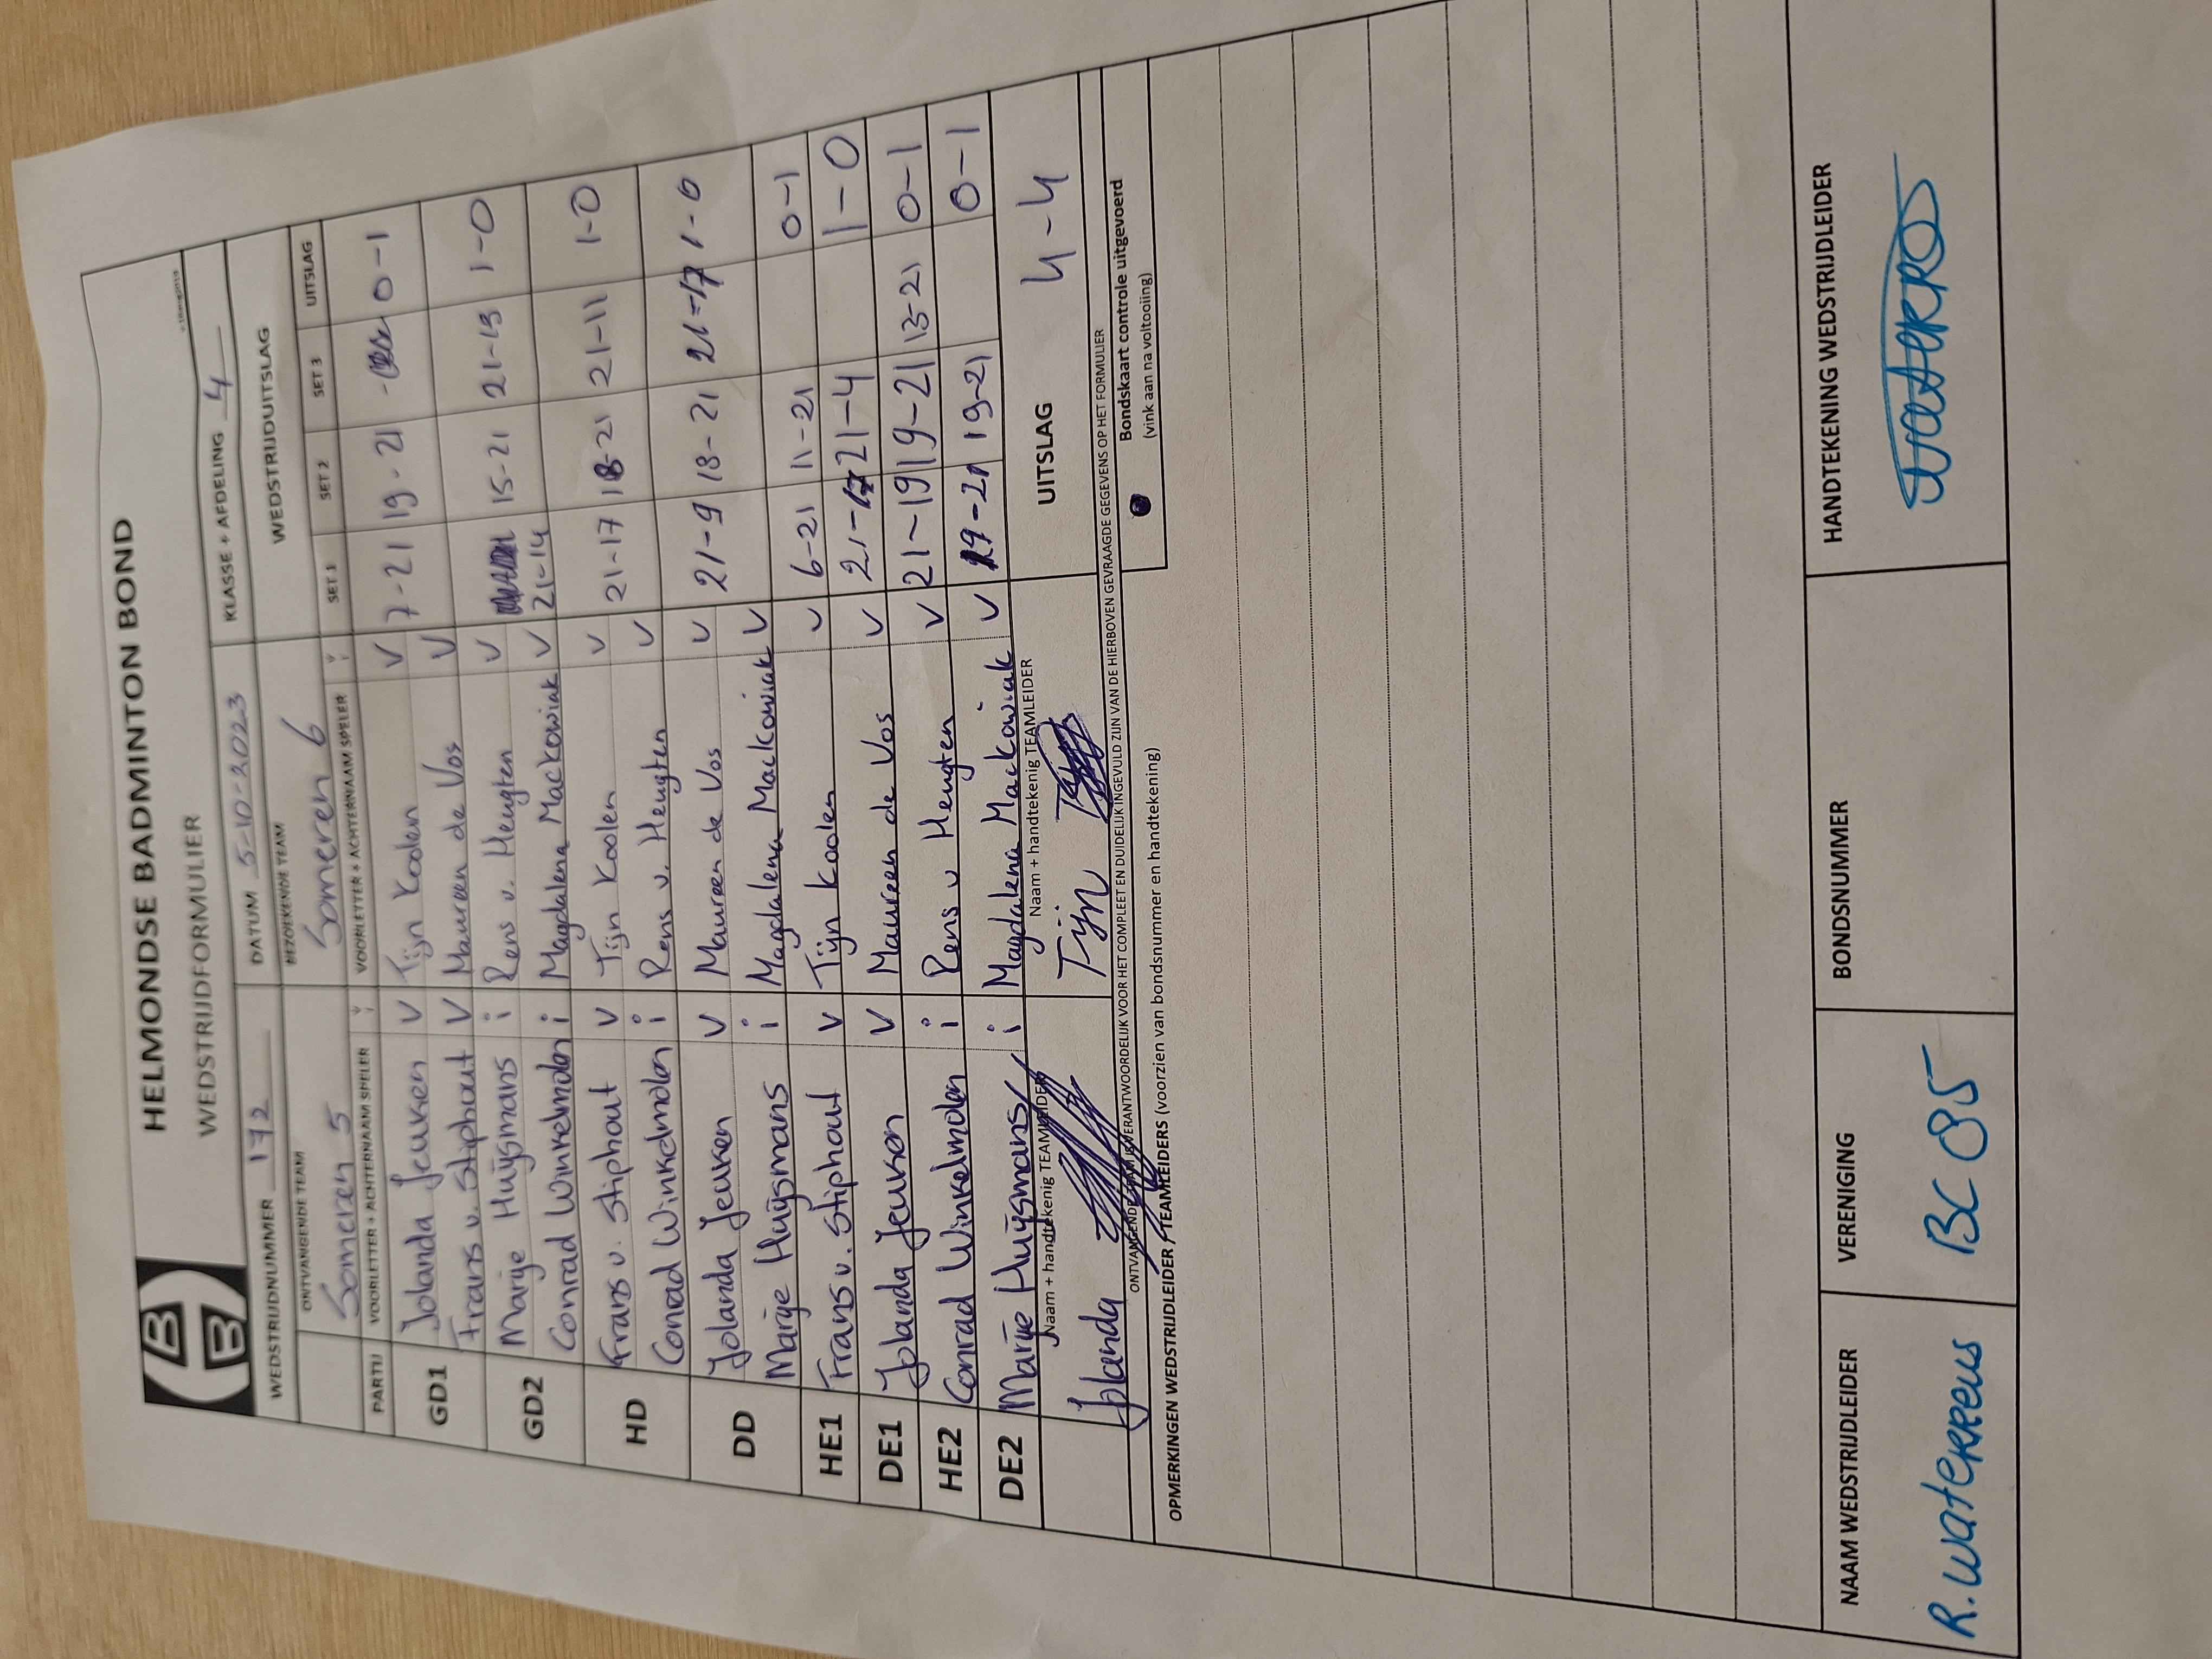 HELMONDSE BADMINTON BOND
WEDSTRIJDFORMULIER
WEDSTRIJDNUMMER 172 DATUM 5-10-2023 KLASSE + AFDELING 4
ONTVANGENDE TEAM BEZOEKENDE TEAM WEDSTRIJDUITSLAG
Someren 5 Someren 6
PARTIJ VOORLETTER + ACHTERNAAM SPELER VOORLETTER + ACHTERNAAM SPELER SET 1 SET 2 SET 3 UITSLAG
GD1 Jolanda Jeuken V Tijn Koolen V 7-21 19-21 - 0-1
Frans v. Stiphout V Maureen de Vos V
GD2 Marije Huijsmans i Rens v. Heugten V 21-14 15-21 21-19 1-0
Conrad Winkelmolen i Magdalena Mackowiak V
HD Frans v. Stiphout V Tijn Koolen V 21-17 18-21 21-11 1-0
Conrad Winkelmolen i Rens v. Heugten V
DD Jolanda Jeuken V Maureen de Vos V 21-9 18-21 21-17 1-0
Marije Huijsmans i Magdalena Mackowiak V
HE1 Frans v. Stiphout V Tijn Koolen V 6-21 11-21 0-1
DE1 Jolanda Jeuken V Maureen de Vos V 21-17 21-4 1-0
HE2 Conrad Winkelmolen i Rens v Heugten V 21-19 19-21 13-21 0-1
DE2 Marije Huijsmans i Magdalena Mackowiak V 19-21 19-21 0-1
Naam + handtekenig TEAMLEIDER Naam + handtekenig TEAMLEIDER
Jolanda Tijn UITSLAG 4-4
ONTVANGENDE TEAM IS VERANTWOORDELIJK VOOR HET COMPLEET EN DUIDELIJK INGEVULD ZIJN VAN DE HIERBOVEN GEVRAAGDE GEGEVENS OP HET FORMULIER
OPMERKINGEN WEDSTRIJDLEIDER / TEAMLEIDERS (voorzien van bondsnummer en handtekening)
Bondskaart controle uitgevoerd
(vink aan na voltooiing)
NAAM WEDSTRIJDLEIDER VERENIGING BONDSNUMMER HANDTEKENING WEDSTRIJDLEIDER
R. Waterreus BC 85